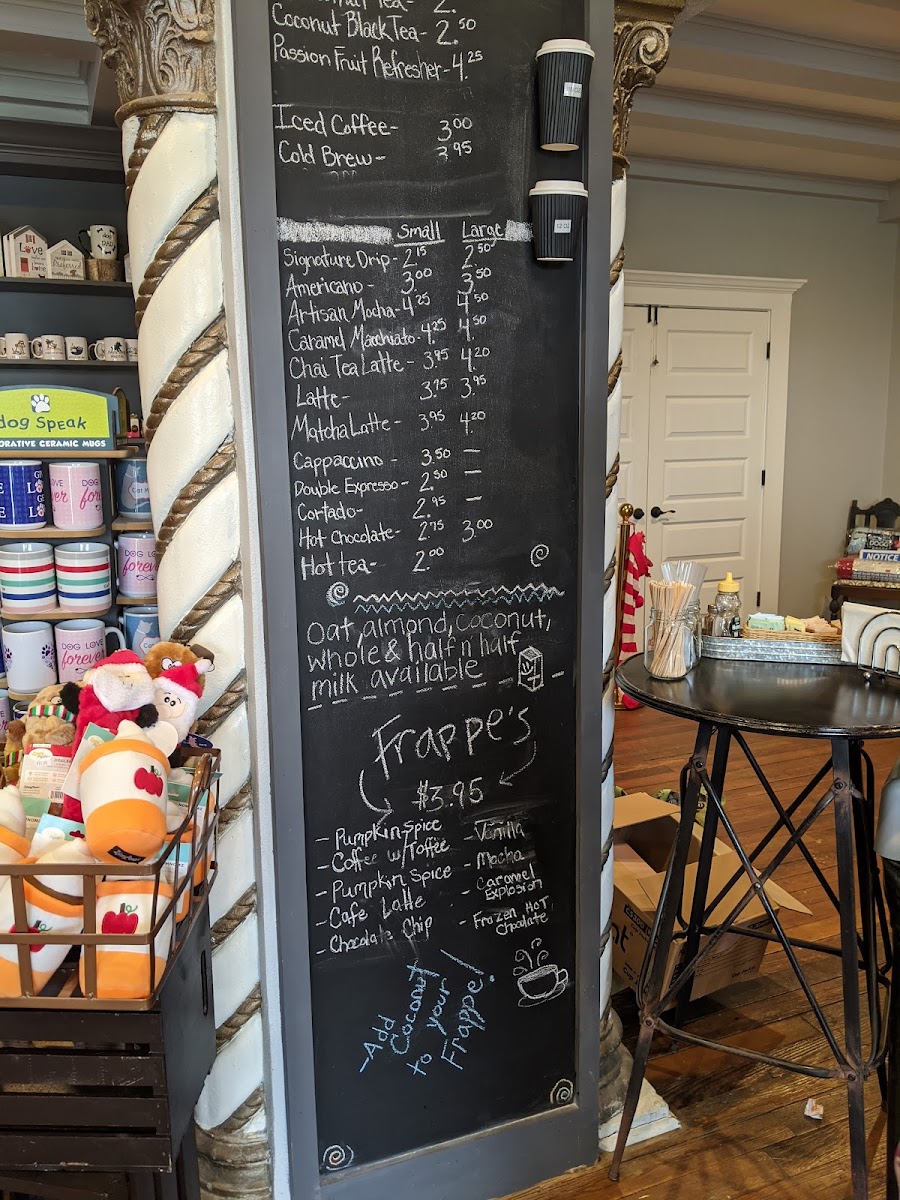 Tea- 2.
Coconut Black Tea- 2.50
Passion Fruit Refresher- 4.25
Iced Coffee- 3.00
Cold Brew- 3.95
Small Large
Signature Drip- 2.15 2.50
Americano- 3.00 3.50
Artisan Mocha- 4.25 4.50
Caramel Macchiato- 4.25 4.50
Chai Tea Latte- 3.95 4.20
Latte- 3.75 3.95
Matcha Latte- 3.95 4.20
Cappaccino - 3.50 —
Double Expresso- 2.50 —
Cortado- 2.95 —
Hot Chocolate- 2.75 3.00
Hot tea- 2.00
Oat, almond, coconut,
whole & half n half
milk available
Frappe's
$3.95
- Pumpkin Spice
- Coffee w/ Toffee
- Pumpkin Spice
- Cafe Latte
- Chocolate Chip
- Vanilla
- Mocha
- Caramel
Explosion
- Frozen HOT
Chocolate
- Add
Coconut
to your
Frappe!
12 OZ
Love
dog Speak
ORATIVE CERAMIC MUGS
DOG LOVE
forever
DOG LOVE
forever
NOTICE